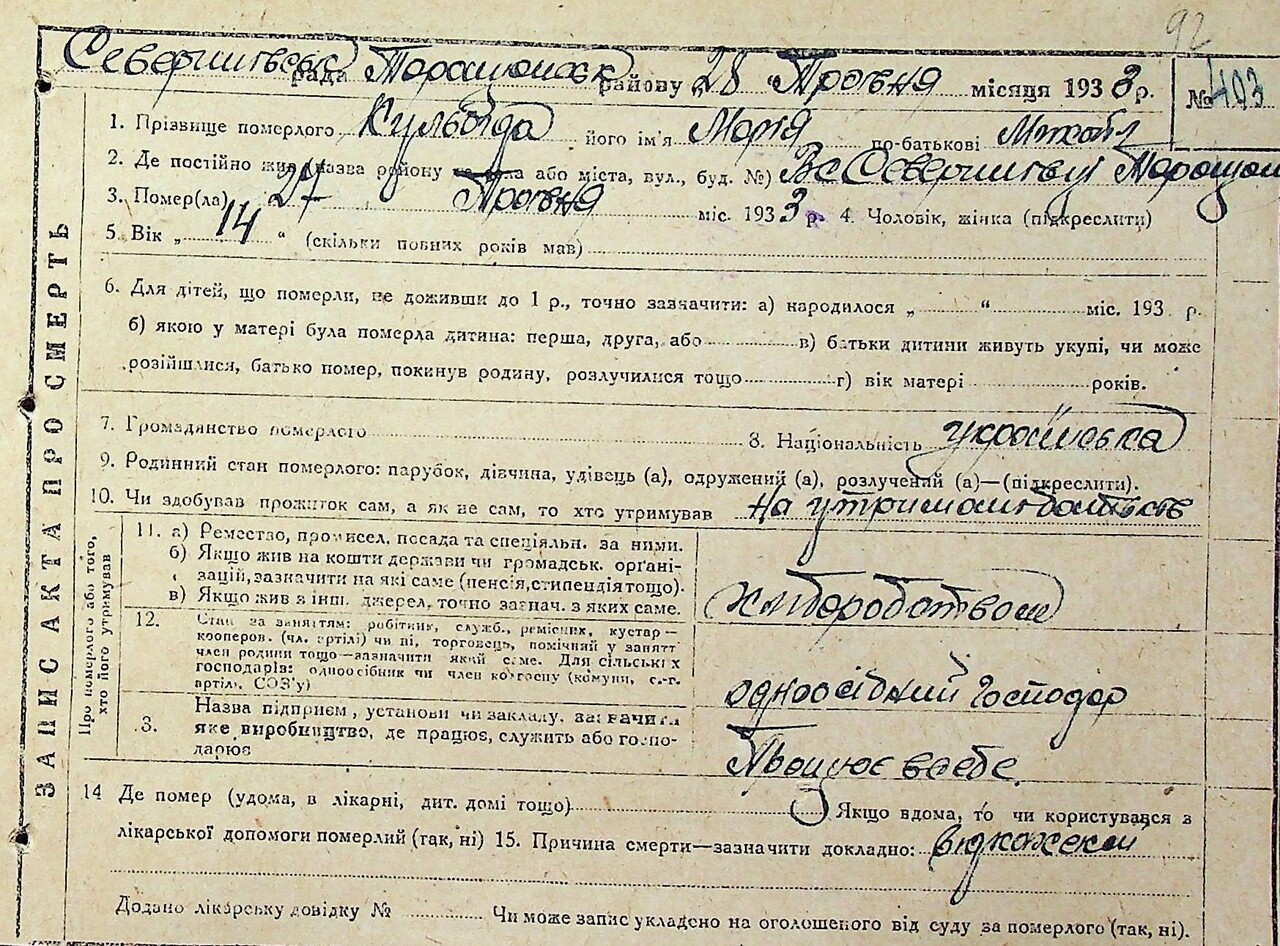 92
рада районy 28 " Травня місяця 1933 р. № 403
1. Прізвище померлого Кульбіда його ім'я Марія по-батькові Михайл
2. Де постійно жив (назва району села або міста, вул., буд. №)
3. Помер(ла) 27 " Травня міс. 1933 р. 4. Чоловік, жінка (підкреслити)
5. Вік „ 14 “ (скільки повних років мав)
6. Для дітей, що померли, не доживши до 1 р., точно зазначити: а) народилося „ “ міс. 193 р.
б) якою у матері була померла дитина: перша, друга, або в) батьки дитини живуть укупі, чи може
розійшлися, батько помер, покинув родину, розлучилися тощо г) вік матері років.
7. Громадянство померлого 8. Національність українська
9. Родинний стан померлого: парубок, дівчина, удівець (а), одружений (а), розлучений (а)—(підкреслити).
10. Чи здобував прожиток сам, а як не сам, то хто утримував На утриманні батьків
ЗАПИС АКТА ПРО СМЕРТЬ
Про померлого або того,
хто його утримував
11. а) Ремество, промисел, посада та спеціяльн. за ними.
б) Якщо жив на кошти держави чи громадськ. орґані-
зацій, зазначити на які саме (пенсія, стипендія тощо).
в) Якщо жив з інш. джерел, точно зазнач. з яких саме.
хліборобством
12. Стан за заняттям: робітник, служб., ремісник, кустар—
кооперов. (чл. артілі) чи ні, торговець, помічний у занятт
член родини тощо—зазначити який саме. Для сільських
господарів: одноосібник чи член колгоспу (комуни, с.-г.
артілі, СОЗ'у)
одноосібний господар
3. Назва підприєм, установи чи закладу, зазначити
яке виробництво, де працює, служить або госпо-
дарює
Працює в себе
14 Де помер (удома, в лікарні, дит. домі тощо) Якщо вдома, то чи користувався з
лікарської допомоги померлий (так, ні) 15. Причина смерти—зазначити докладно:
Додано лікарську довідку № Чи може запис укладено на оголошеного від суду за померлого (так, ні).